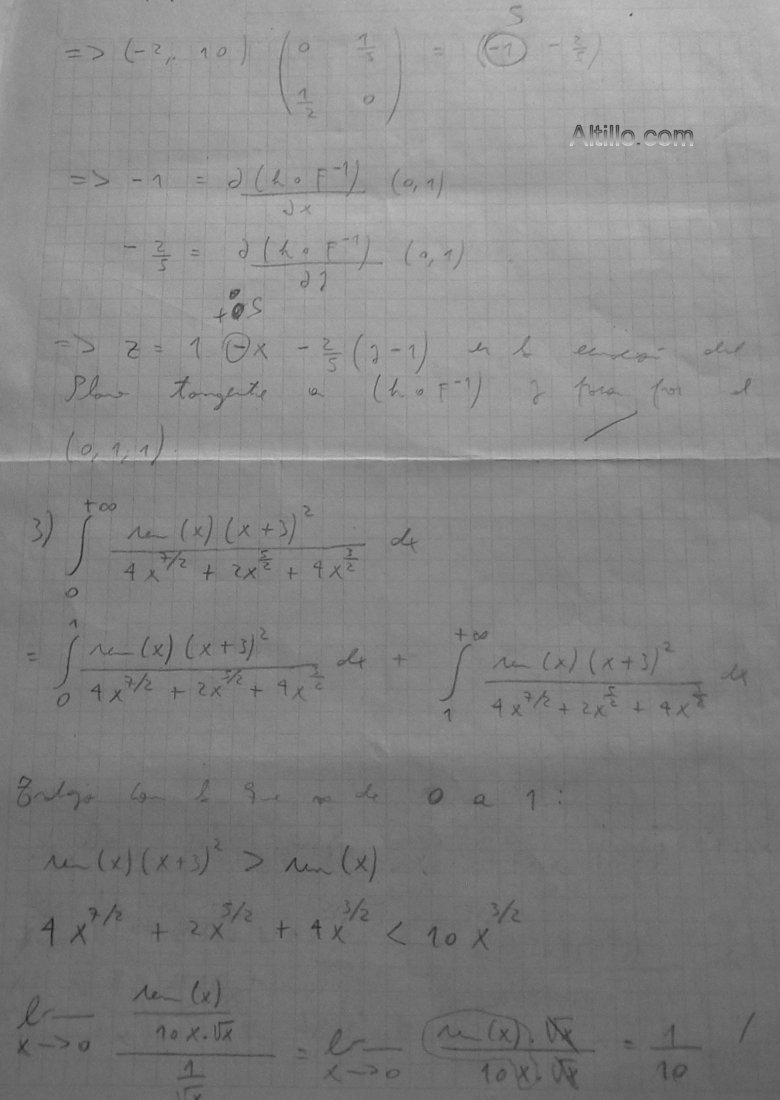 5
=> (-2, 10) (0 1/5 1/2 0) = (-1 -2/5)
Altillo.com
=> -1 = ∂(h∘F⁻¹)/∂x (0,1)
-2/5 = ∂(h∘F⁻¹)/∂y (0,1)
+ 5
=> z = 1 - x - 2/5 (y-1) es la ecuación del
Plano tangente a (h∘F⁻¹) y pasa por el
(0,1,1).
3) ∫₀^{+∞} sen(x)(x+3)²/(4x^{7/2} + 2x^{5/2} + 4x^{3/2}) dx
= ∫₀^1 sen(x)(x+3)²/(4x^{7/2} + 2x^{5/2} + 4x^{3/2}) dx + ∫₁^{+∞} sen(x)(x+3)²/(4x^{7/2} + 2x^{5/2} + 4x^{3/2}) dx
Trabajo con la que va de 0 a 1:
sen(x)(x+3)² > sen(x)
4x^{7/2} + 2x^{5/2} + 4x^{3/2} < 10x^{3/2}
lim x->0 (sen(x)/(10x.√x))/(1/√x) = lim x->0 (sen(x).√x)/(10x.√x) = 1/10